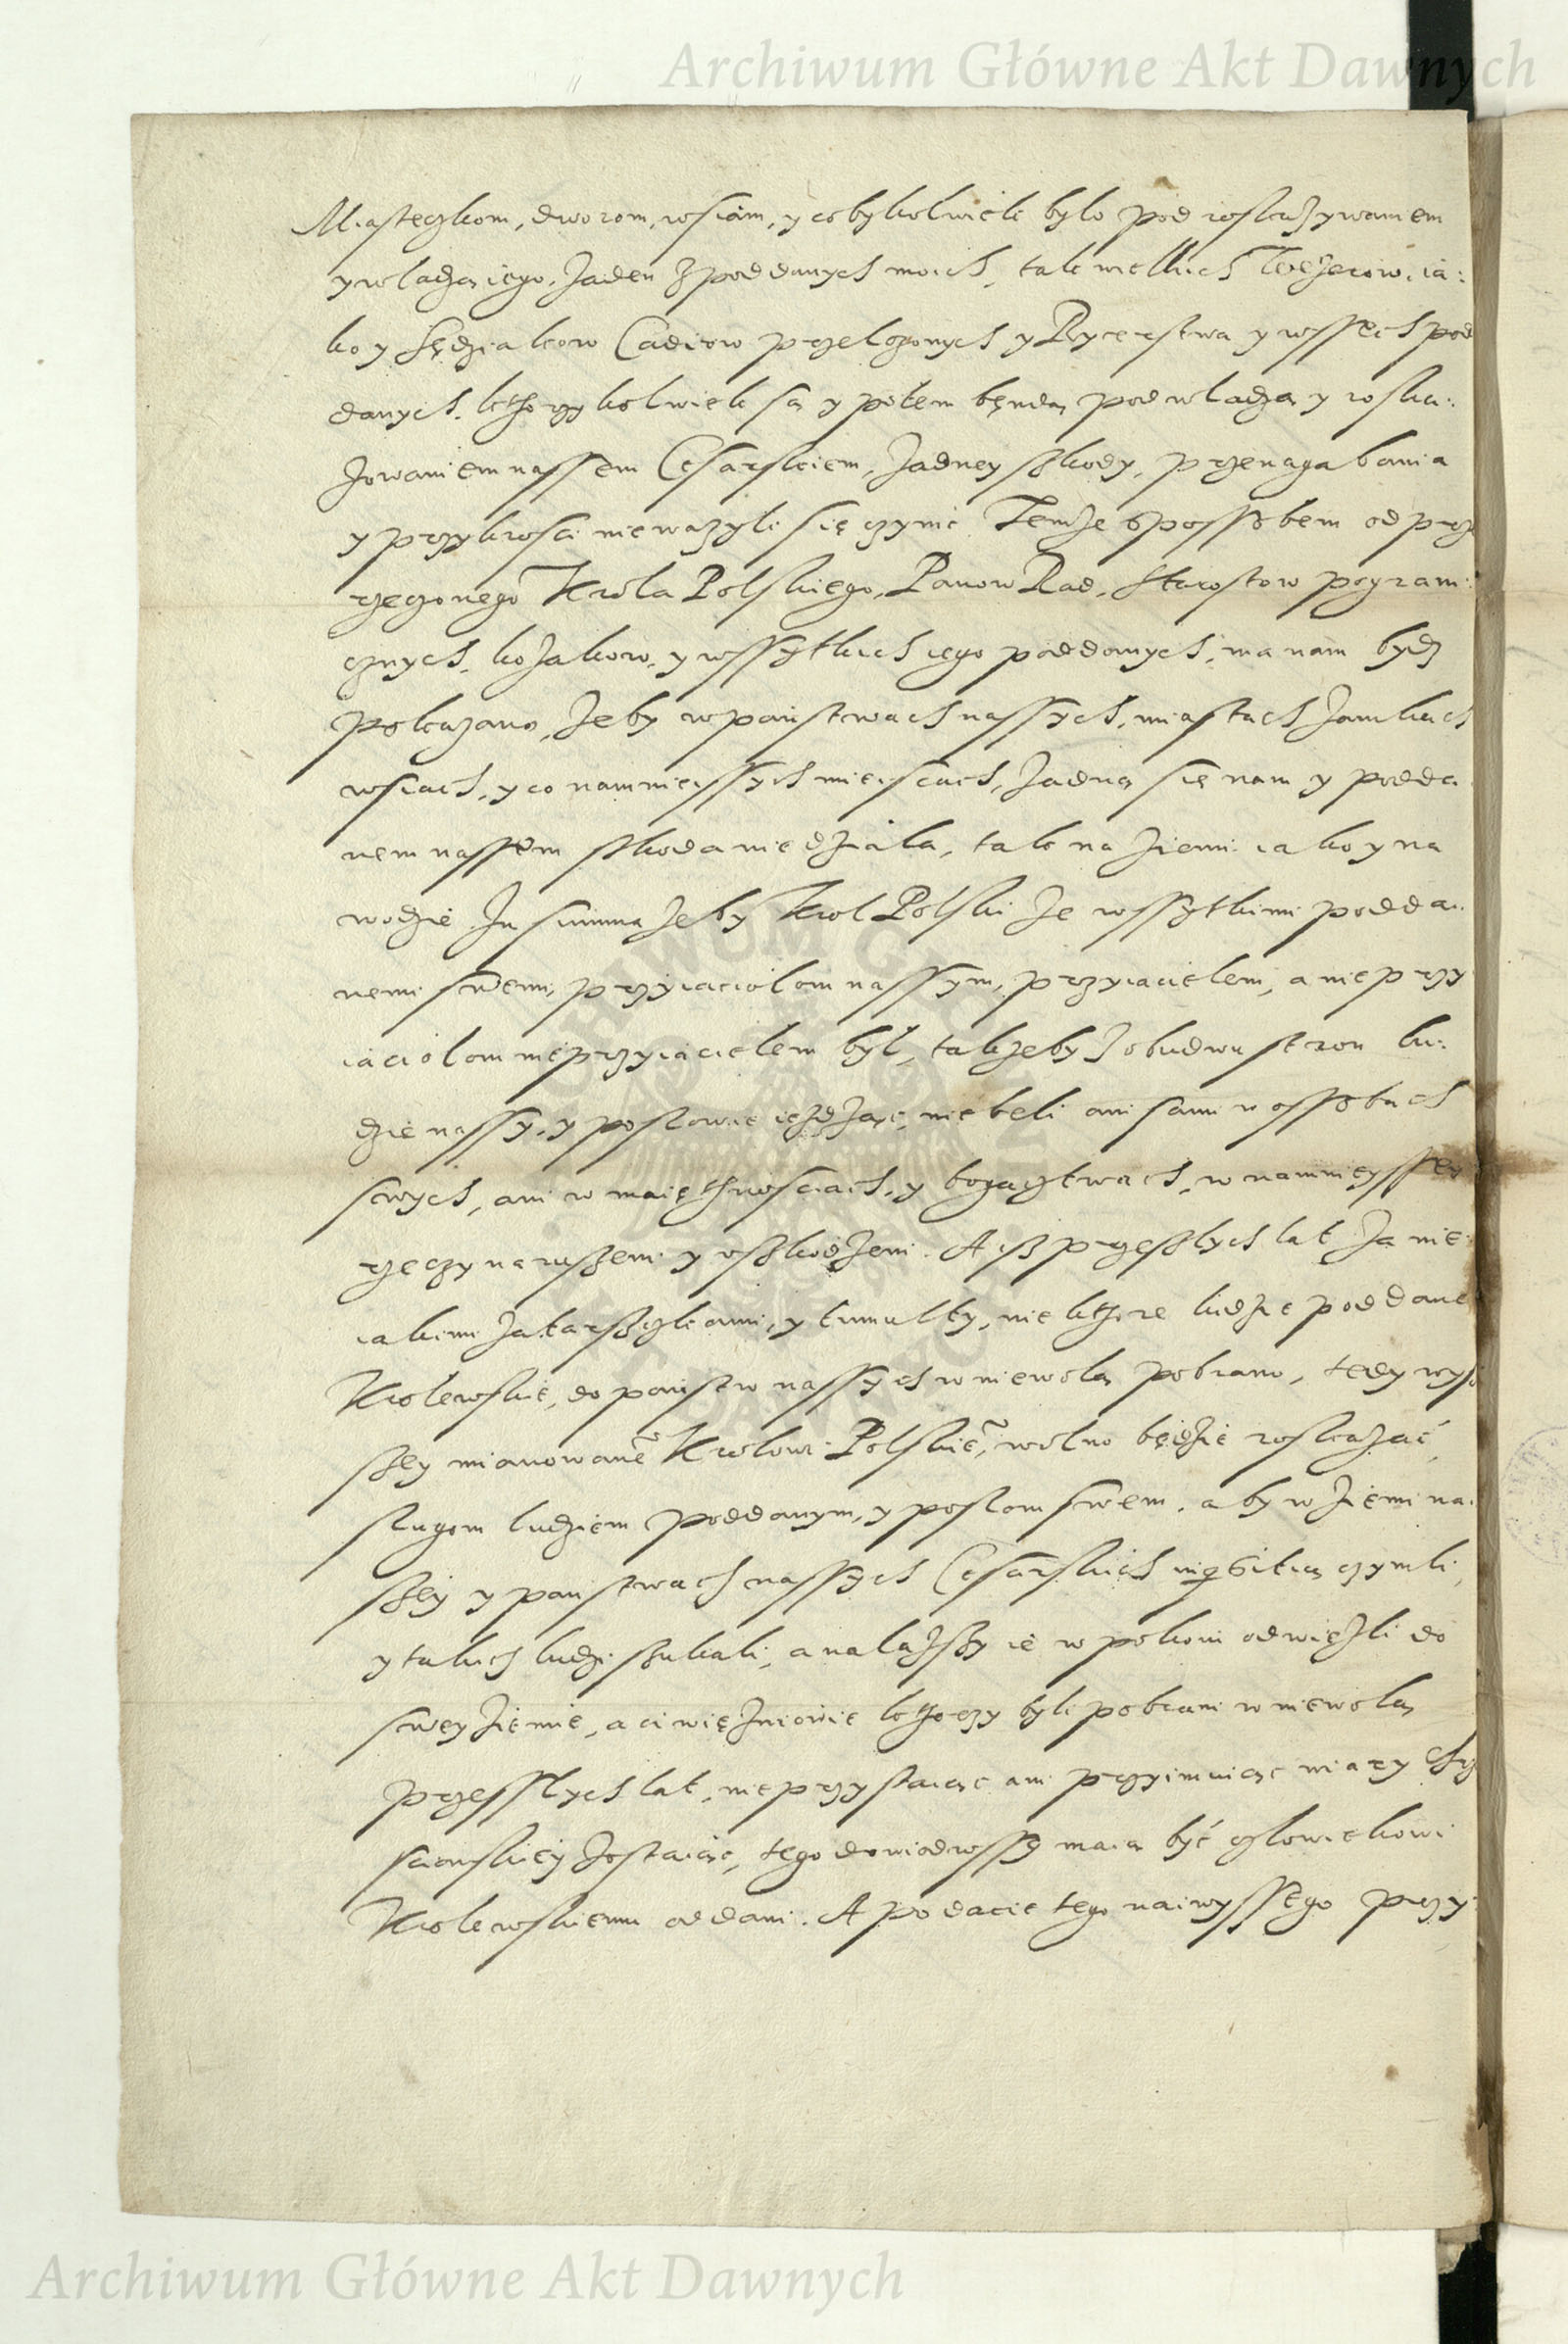 Archiwum Główne Akt Dawnych
Miasteczkom, dworom, wsiam, y cobykolwiek było pod roskazywaniem
y władzą iego, żaden z poddanych moich, tak wielkich Wezerow, ia:
ko y Sędziakow Cadiow przełożonych y Rycerstwa y wssech pod
danych, kthorzykolwiek są y potem będą pod władzą y roska:
zowaniem nassem Cesarskiem, żadney szkody, przenagabania
y przykrosci nieważyli się czynic Temże sposobem od prze
rzeczonego Krola Polskiego, Panow Rad, Starostow pogran:
cznych, kozakow, y wssytkich iego poddanych, ma nam bydz
pokazano, żeby w państwach nassych, miastach zamkach
wsiach, y co namnieyssych mieyscach, żadna się nam y podda
nem nassem skoda niedziala, tak na ziemi iako y na
wodzie In summa żeby Krol Polski ze wssytkimi podda:
nemi swemi, przyiaciolom nassym, przyiacielem, a nieprzy
iaciolom nieprzyiacielem był, takżeby z obudwu stron lu:
dzie nassy, y posłowie ieżdżąc, niebeli ani sami w ossobach
swych, ani w maiętnosciach, y bogactwach, w namnieyssey
rzeczy naruszeni y uszkodzeni. A isz przeszłych lat za nie
iakimi zatarszczkami, y tumulty, niekthore ludzie poddane
Krolewskie, do państw nassych w niewolą pobrano, tedy wysz
szey mianowanẽ Krolowi Polskiẽ, wolno będzie roskazać,
sługom ludziem poddanym, y posłom swem, aby w ziemi na:
szey y panstwach nassych Cesarskich inqisitią czynili,
y takich ludzi szukali, a nalazszy ie w pokoiu odwieźli do
swey ziemie, a ci więzniowie kthorzy byli pobrani w niewolą
przesszłych lat, nieprzystaiąc ani przyimuiąc wiary Chrz
scianskiey zostaiąc, tego dowiodwssy maią być człowiekowi
Krolewskiemu oddani. A po dacie tego naiwyssego przy
Archiwum Główne Akt Dawnych